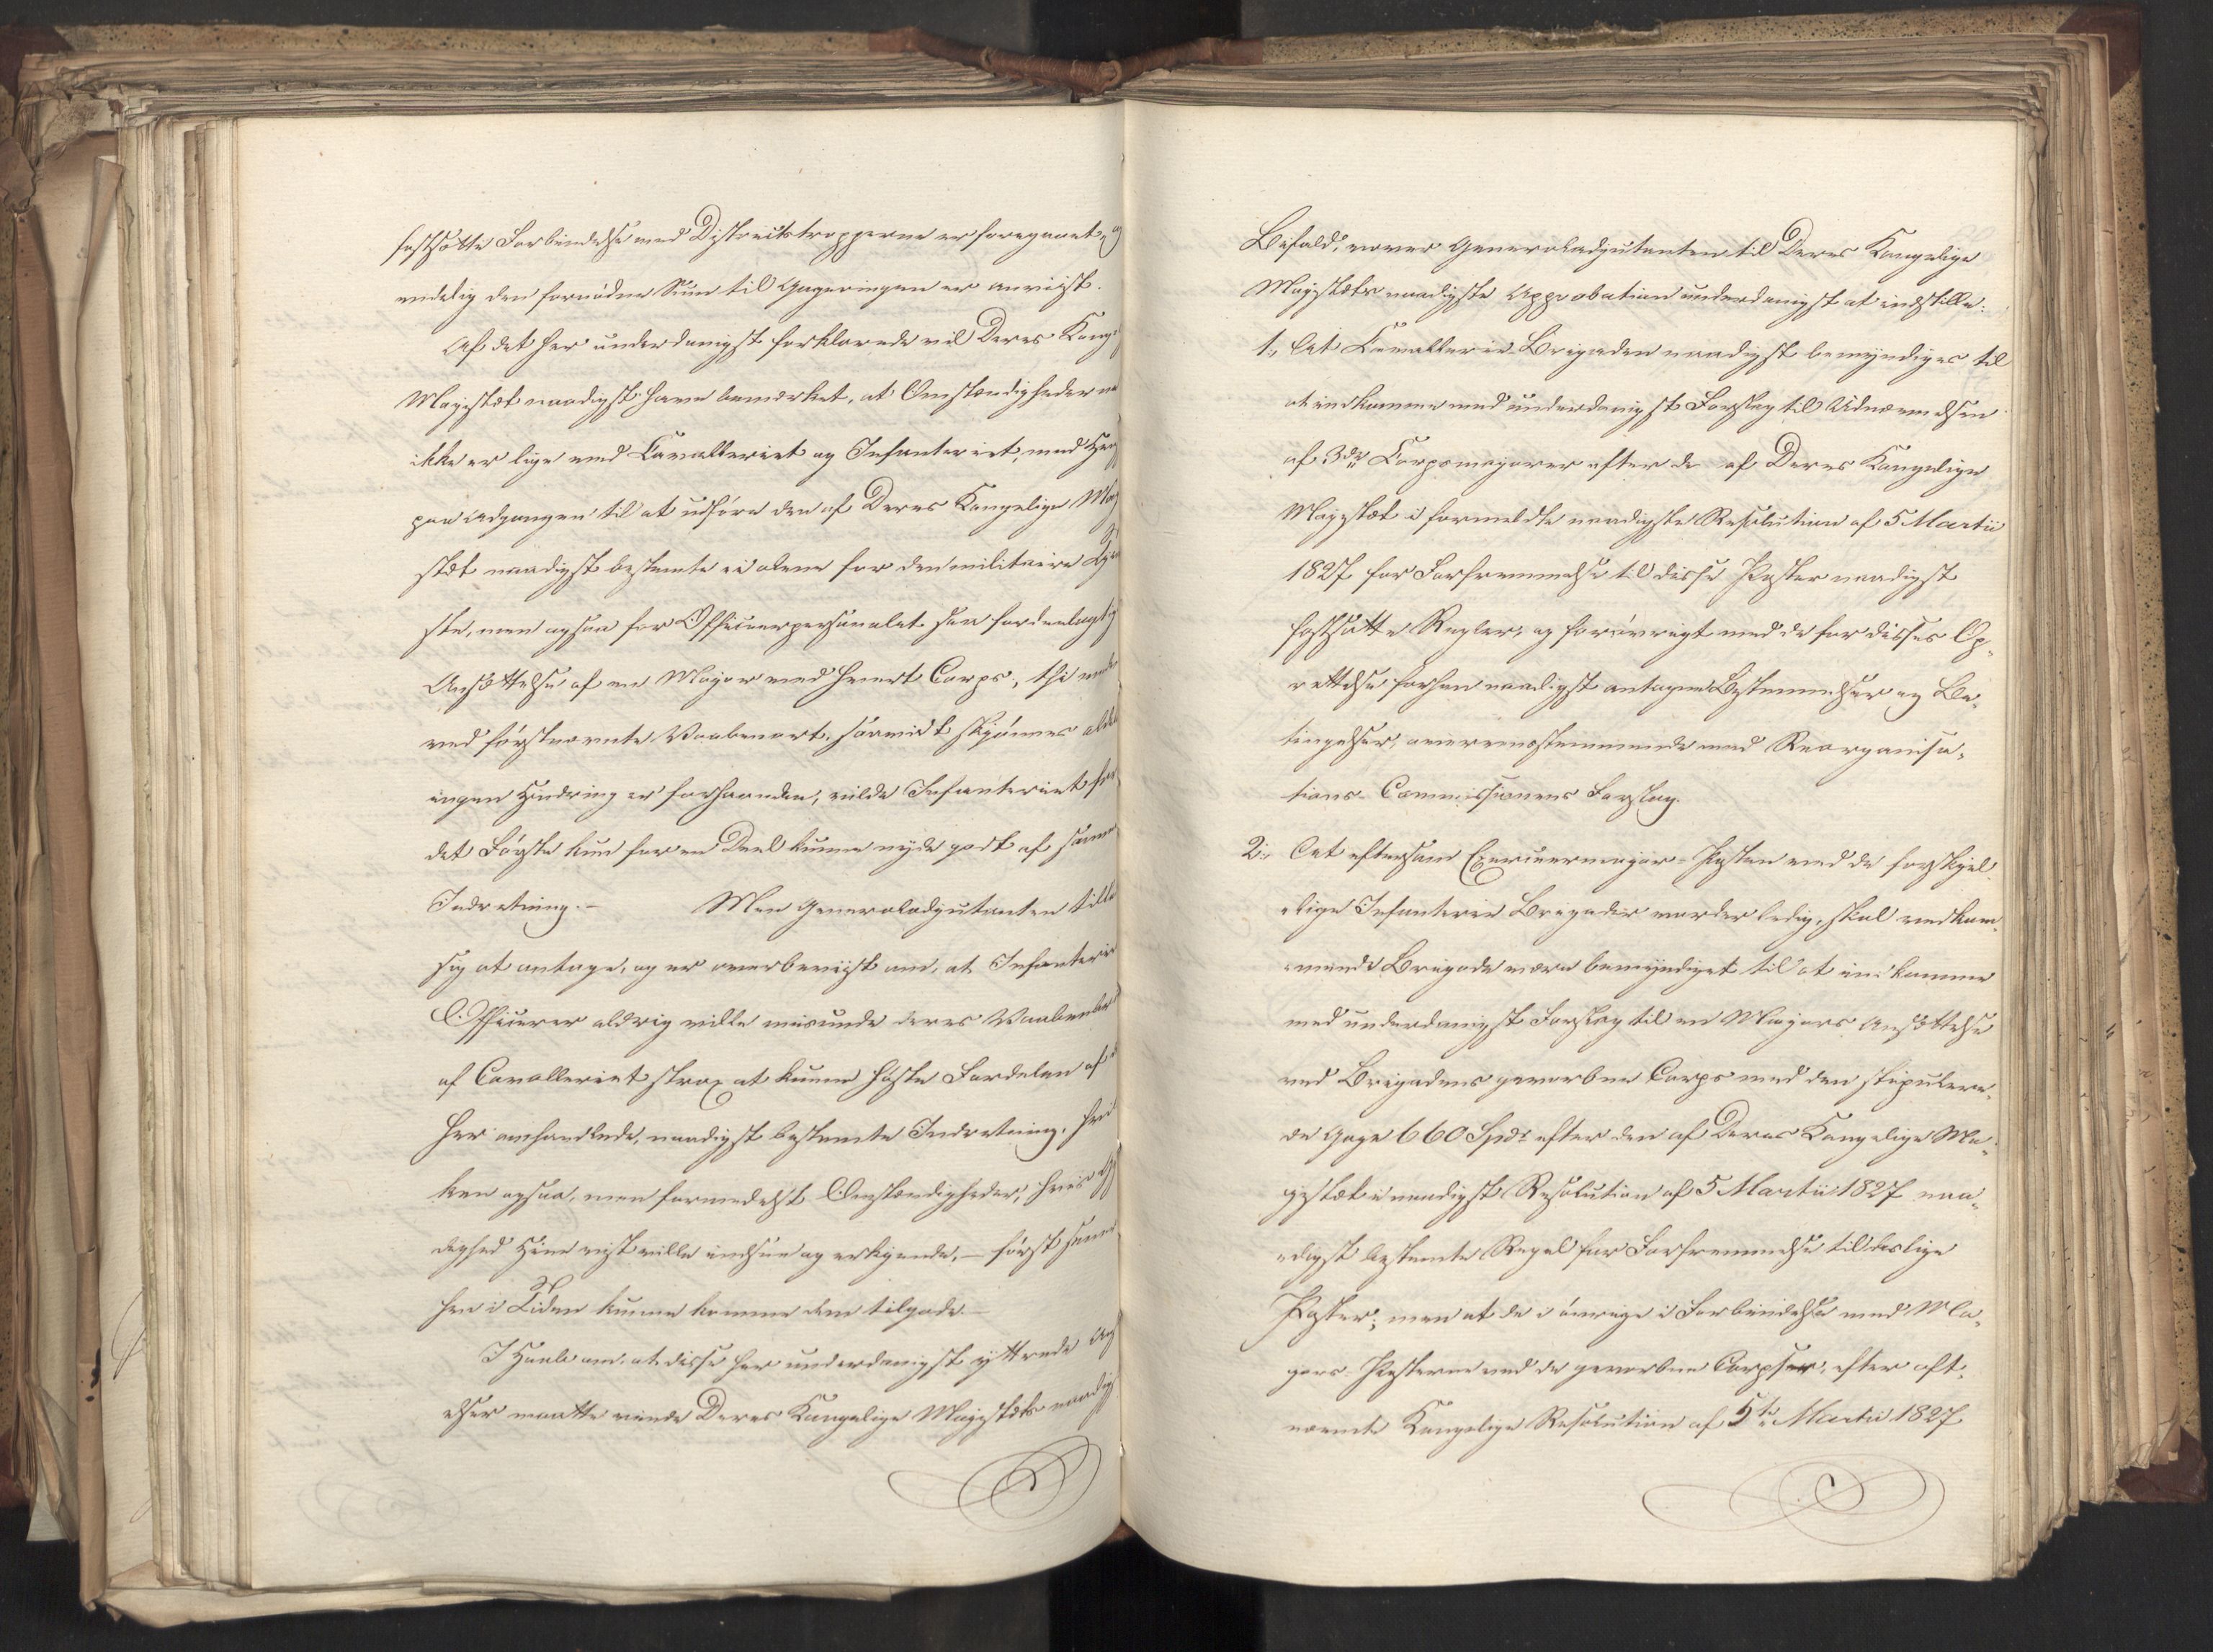 fastsatte Forbindelse med Districtstropperne er foregaaet, og
endelig den fornødne Sum til Gageringen er anviist.
Af det her underdanigst forklarede vil Deres Kongel
Majestæt naadigst have bemærket, at Omstændighederne
ikke er lige med Cavalleriet og Infanteriet, med Hen
paa Adgangen til at udføre den af Deres Kongelige Maj
stæt naadigst bestemte ei alene for den militaire Tjene
ste, men ogsaa for Officeerpersonalet saa fordeelagtig
Ansættelse af en Major ved hvert Corps, thi
ved førstnævnte Vaabenart, saavidt skjønnes
ingen Hindring er forhaanden, vilde Infanteriet for
det Første kun for en Deel kunne nyde godt af samme
Indretning.— Men Generaladjutanten
sig at antage, og er overbeviist om, at Infanterie
Officerer aldrig ville misunde deres Vaaben
af Cavalleriet strax at kunne høste Fordelen af
her omhandlede, naadigst bestemte Indretning, hvil
ken ogsaa, men formedelst Omstændigheder, hvis
dighed Hine vist ville indsee og erkjende,— først
hen i Tiden kunne komme dem tilgode.—
I Haab om, at disse her underdanigst yttrede An
elser maatte vinde Deres Kongelige Majestæts naadig
Bifald, vover Generaladjutanten til Deres Kongelige
Majestæts naadigste Approbation underdanigst at indstille:
1., At Cavallerie-Brigaden naadigst bemyndiges til
at indkomme med underdanigst Forslag til Udnævnelsen
af 3de Corpsmajorer efter de af Deres Kongelige
Majestæt i formeldte naadigste Resolution af 5 Martii
1827 for Forfremmelse til disse Poster naadigst
fastsatte Regler, og forøvrigt med de for disses Op-
rettelse forhen naadigst antagne Bestemmelser og Be-
tingelser, overensstemmende med Reorganisa-
tions-Commissionens Forslag.
2., At eftersom Exerceermajor-Posten ved de forskjel-
lige Infanterie Brigader vorder ledig, skal vedkom-
mende Brigade være bemyndiget til at indkomme
med underdanigst Forslag til en Majors Ansættelse
ved Brigadens gevorbne Corps med den stipulere-
de Gage 660 Spdr efter den af Deres Kongelige Ma-
jestæt i naadigst Resolution af 5 Martii 1827 naa-
digst bestemte Regel for Forfremmelse til deslige
Poster; men at de i øvrige i Forbindelse med Ma-
jors-Posterne ved de gevorbne Corpser, efter oft-
nævnte Kongelige Resolution af 5te Martii 1827